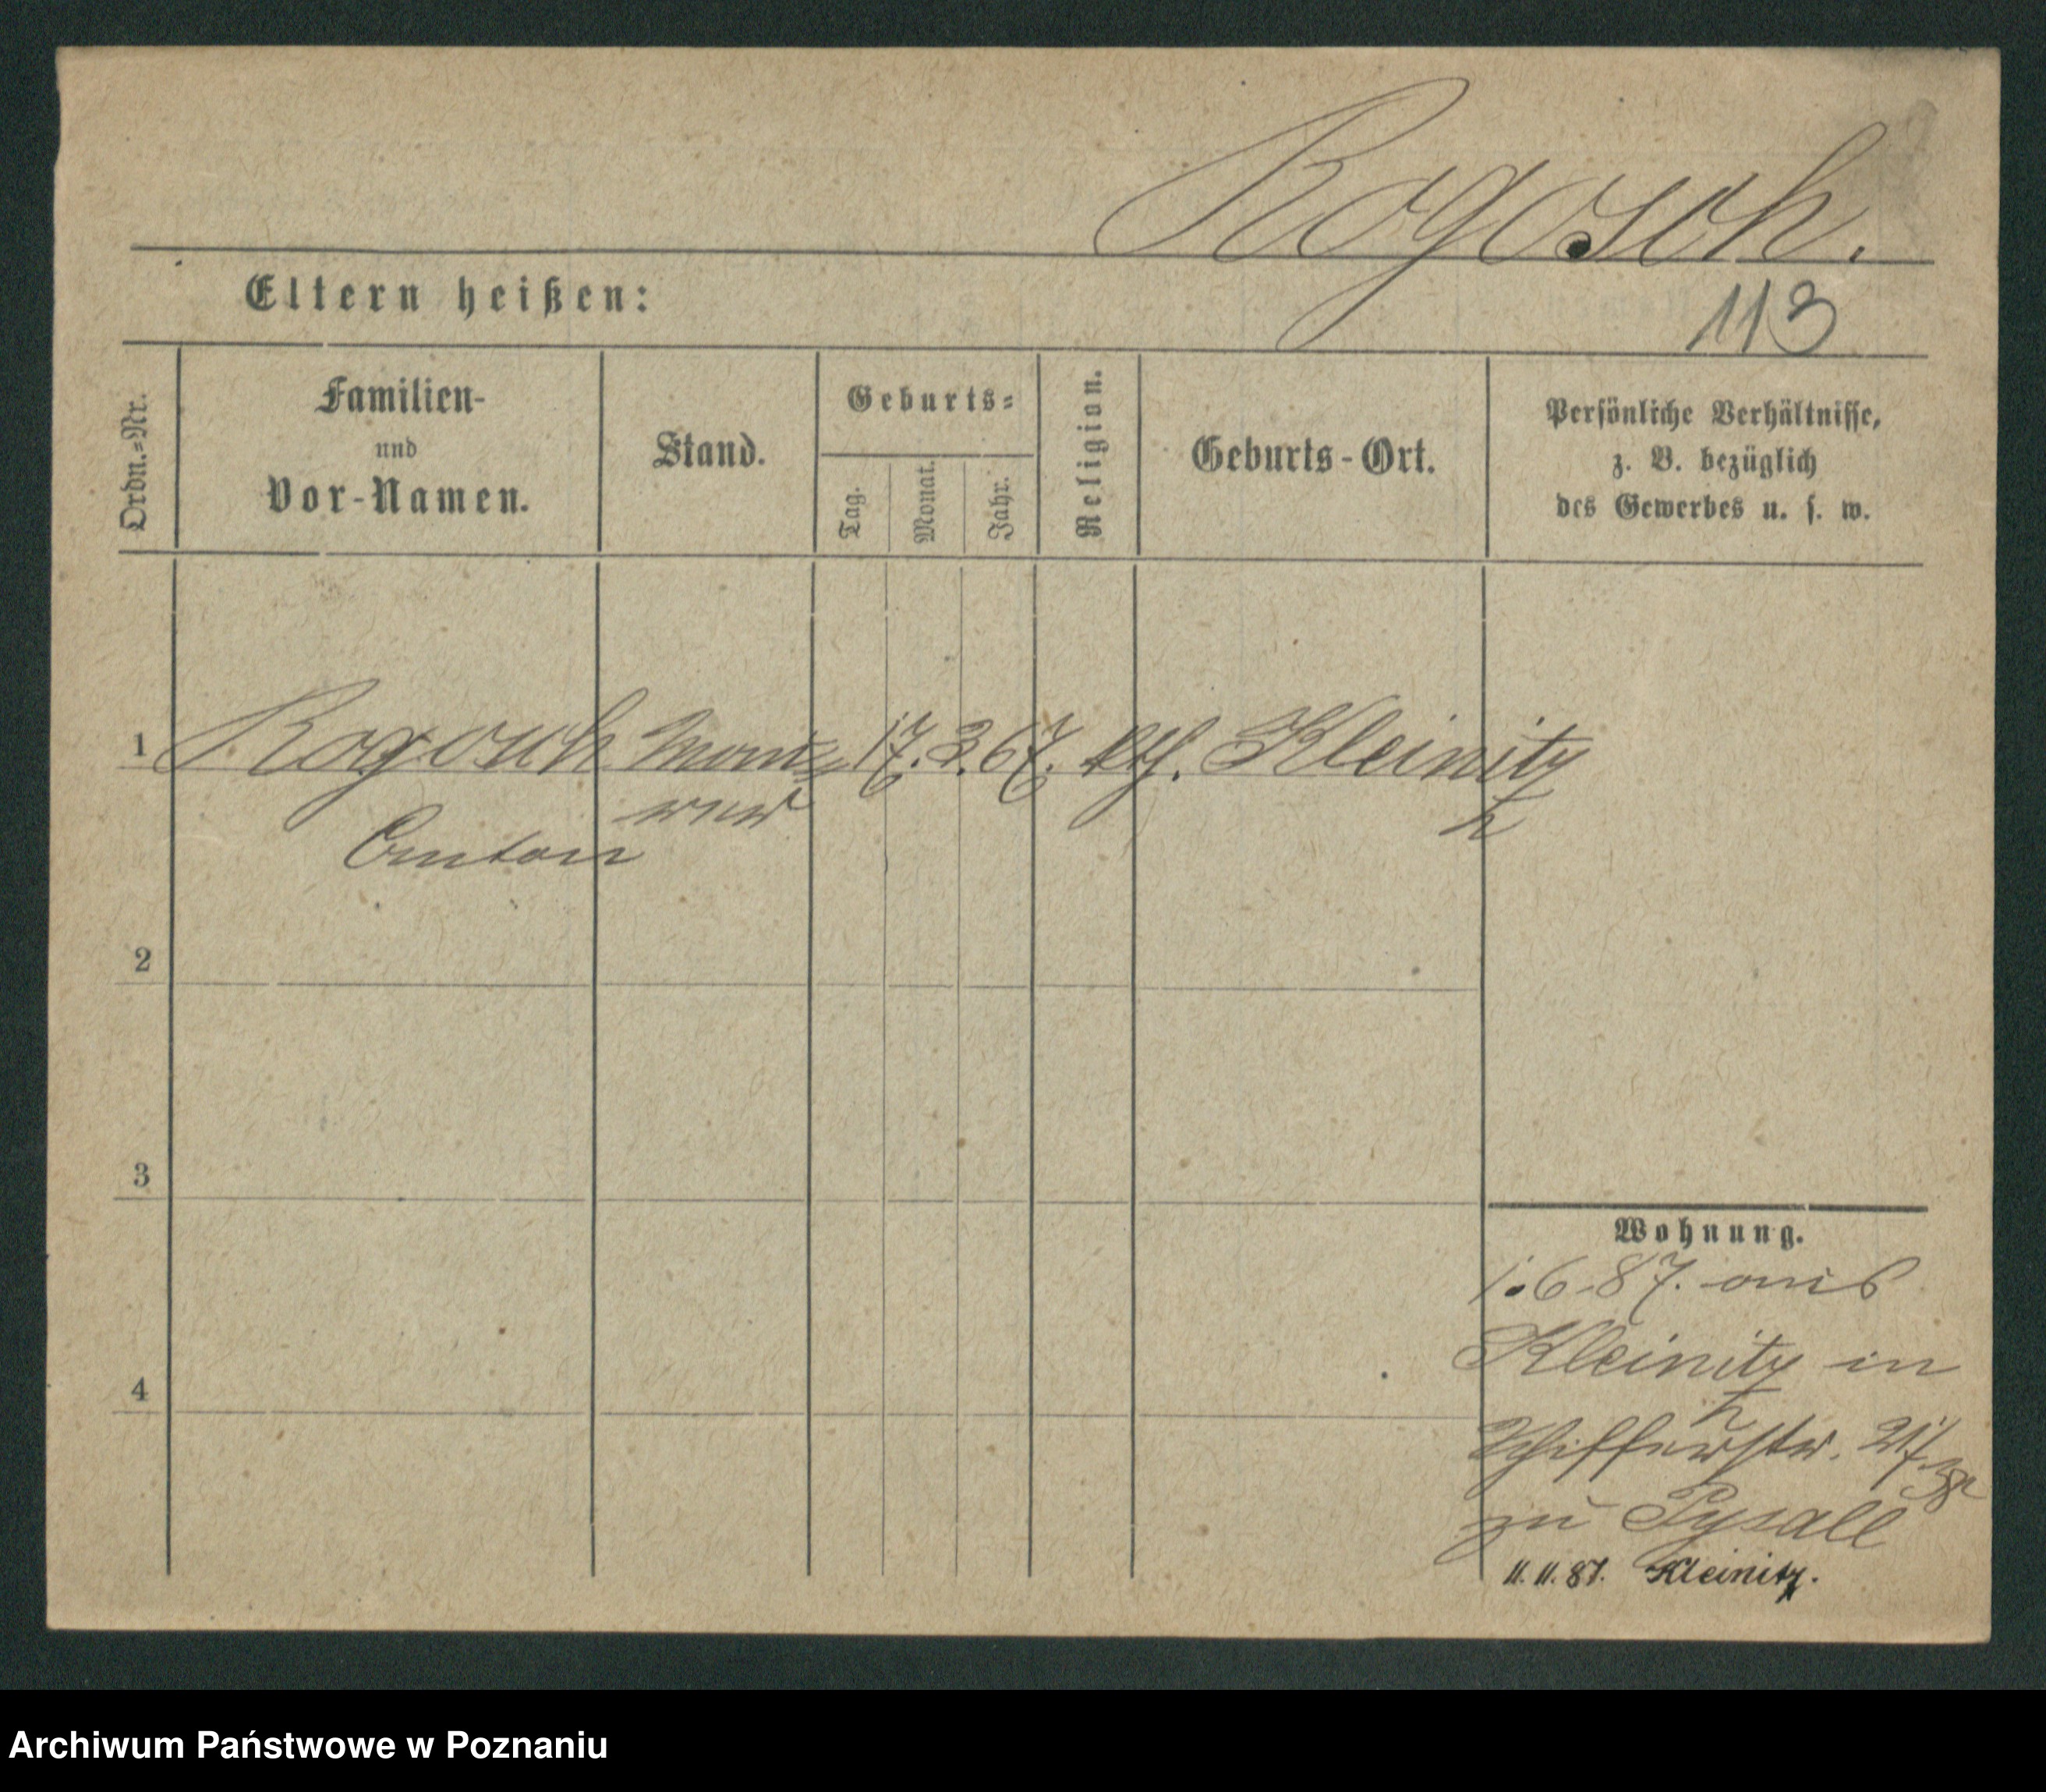 Rogosch.
Eltern heißen:
113
Ordn.=Nr.
Familien-
und
Vor-Namen.
Stand.
Geburts=
Tag.
Monat.
Jahr.
Religion.
Geburts-Ort.
Persönliche Verhältnisse,
z. B. bezüglich
des Gewerbes u. s. w.
1 Rogosch Mau= 17. 3. 67. kth. Kleinitz
rer
Anton
2
3
4
Wohnung.
1.6.87. aus
Kleinitz in
Schifferstr. 21/
zu Pysall
11.11.87. Kleinitz.
Archiwum Państwowe w Poznaniu